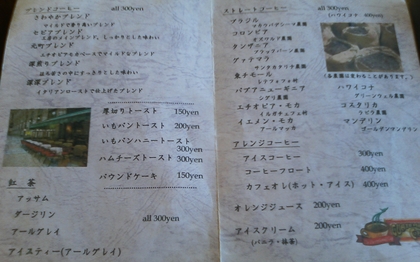 ブレンドコーヒー all 300yen
さわやかブレンド
マイルドで香り高いブレンド
セピアブレンド
元町ブレンド
深煎りブレンド
深淳ブレンド
イタリアンローストで仕上げたブレンド
厚切りトースト 150yen
いもパントースト 200yen
いもパンハニートースト 300yen
ハムチーズトースト 300yen
パウンドケーキ 150yen
紅茶
アッサム
ダージリン all 300yen
アールグレイ
アイスティー(アールグレイ)
ストレートコーヒー all 300yen
(ハワイコナ 400yen)
ブラジル
コロンビア
タンザニア
グァテマラ
東チモール
パプアニューギニア
シグリ農園
エチオピア・モカ
イエメン・モカ
アールマッカ
ハワイコナ
コスタリカ
マンデリン
アレンジコーヒー
アイスコーヒー 300yen
コーヒーフロート 400yen
カフェオレ(ホット・アイス) 400yen
オレンジジュース 200yen
アイスクリーム 200yen
(バニラ・抹茶)